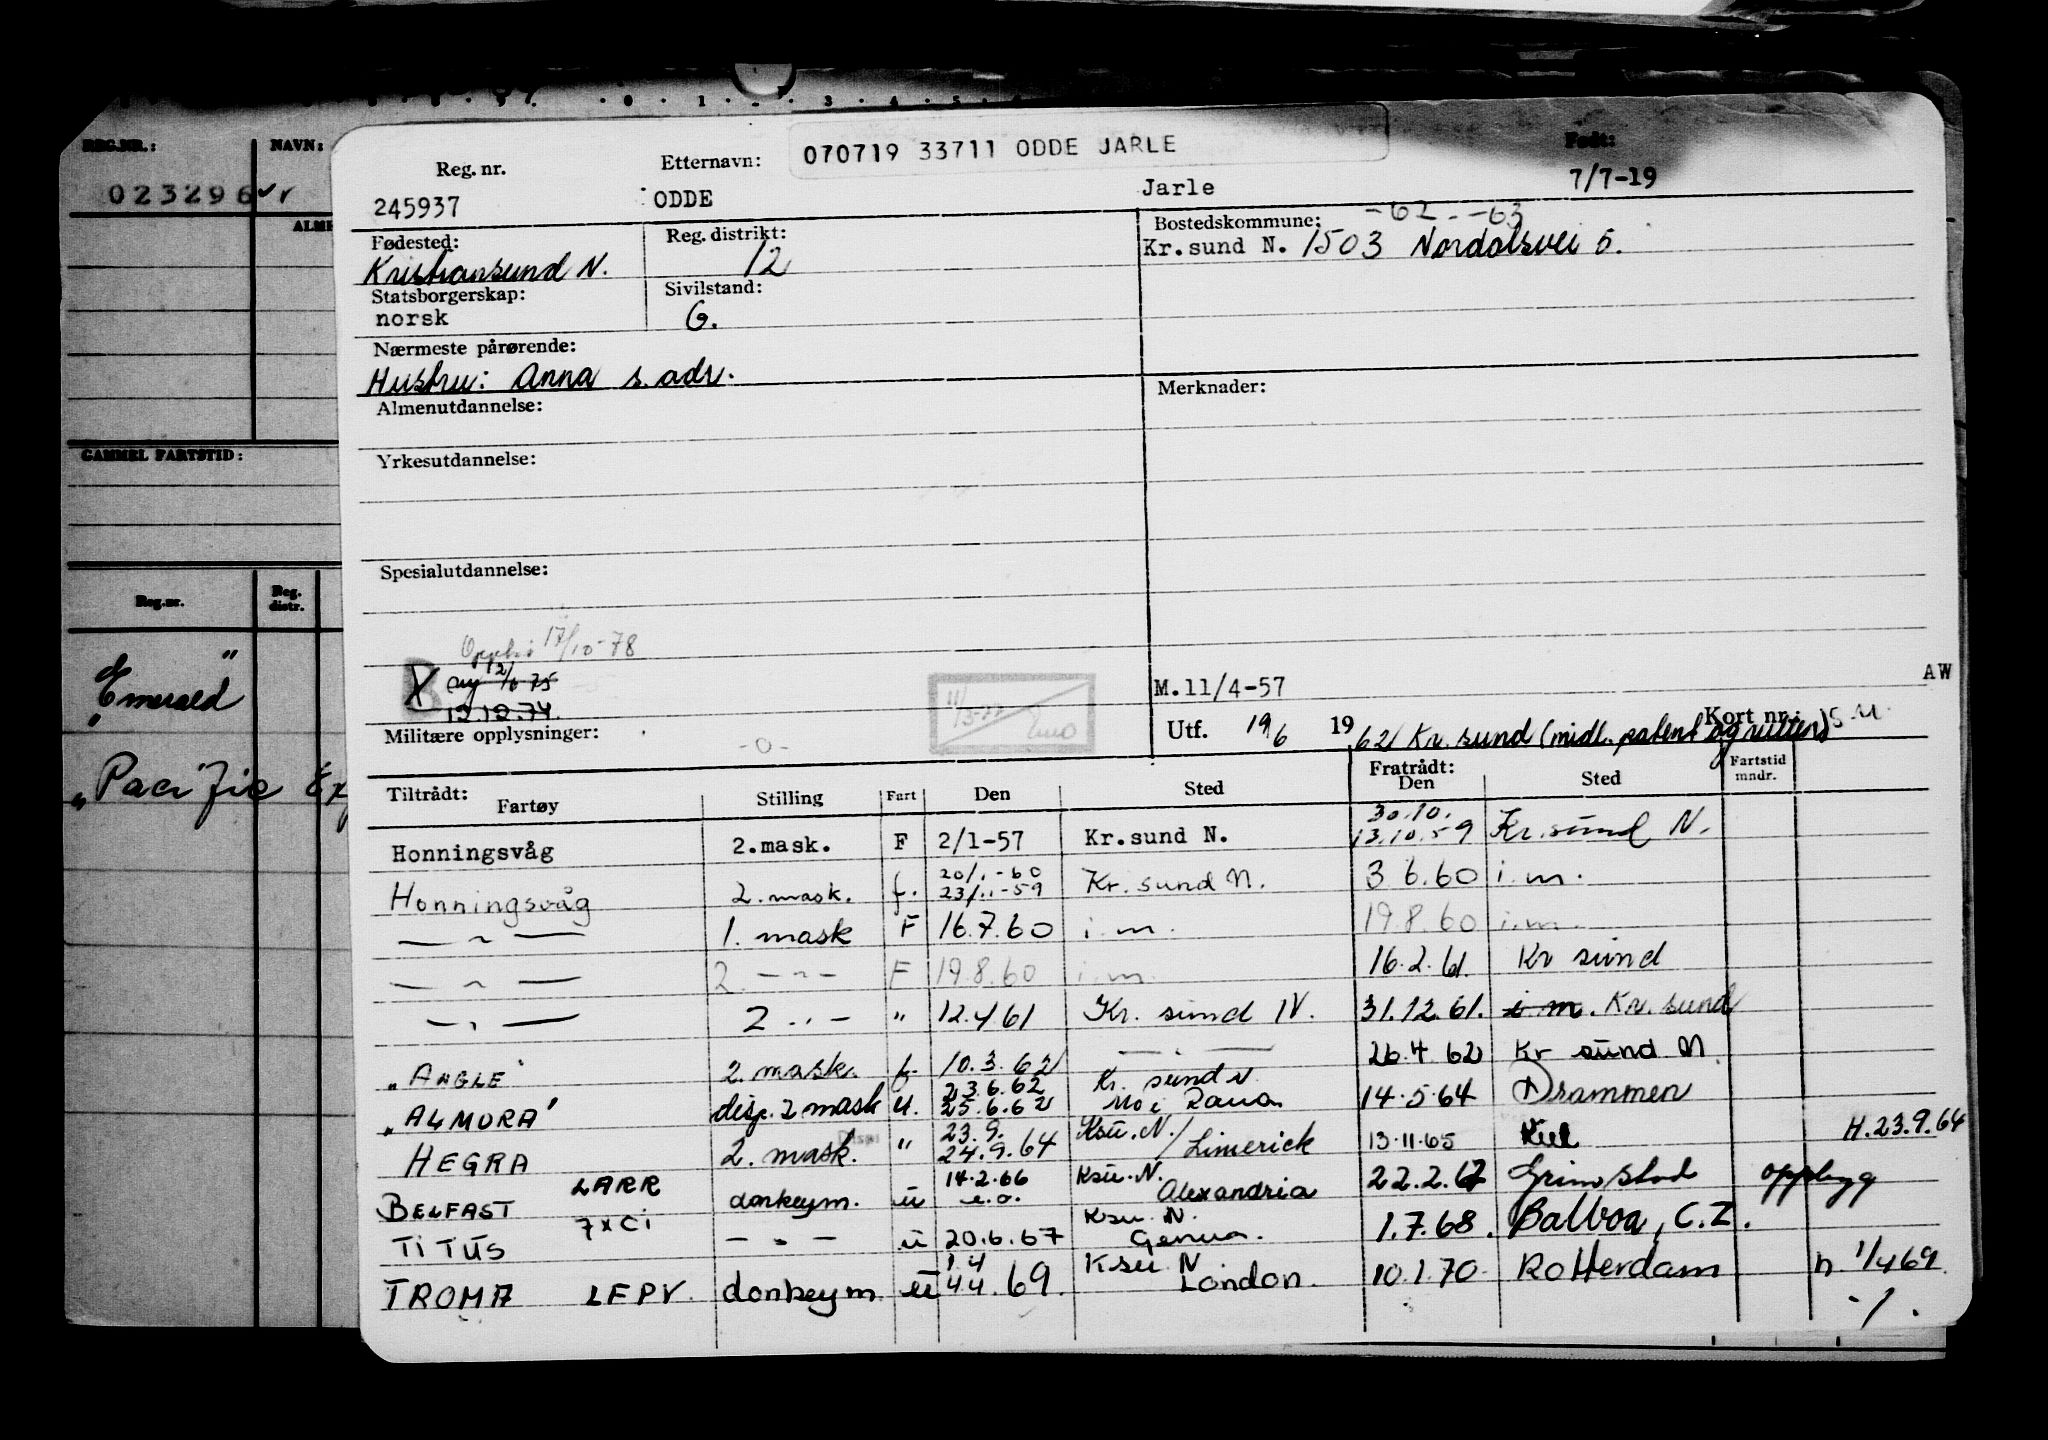 REG.NR.:
NAVN:
023296
GAMMEL FARTSTID:
Reg.nr.
Reg. distr.
"Emerald"
"Pacific Ex
070719 33711 ODDE JARLE
Reg. nr. Etternavn: Født:
245937 ODDE Jarle 7/7-19
Fødested: Reg. distrikt: Bostedskommune: -62 -63
Kristiansund N. 12 Kr.sund N. 1503 Nordalsvei 5.
Statsborgerskap: Sivilstand:
norsk G.
Nærmeste pårørende:
Hustru: Anna s. adr.
Almenutdannelse: Merknader:
Yrkesutdannelse:
Spesialutdannelse:
17/10-78
X B 12/6 75
12.12.74.
M.11/4-57 AW
Militære opplysninger: -0- Utf. 19/6 1962 Kr. sund (midl. patent og ruller) Kort nr.:
Tiltrådt: Fartøy Stilling Fart Den Sted Fratrådt: Den Sted Fartstid mndr.
Honningsvåg 2.mask. F 2/1-57 Kr.sund N. 30.10. 13.10.59 Kr.sund N.
Honningsvåg 2. mask. f. 20/1-60 23/11-59 Kr. sund N. 3 6.60 i.m.
— " — 1. mask F 16.7.60 i.m. 19.8.60 i.m.
— " — 2. — " — F 19.8.60 i.m. 16.2.61. Kr sund
— " — 2 — " — " 12.4.61 Kr. sund N. 31.12.61. i.m. Kr. sund
"ANGLE" 2. mask. f. 10.3.62 — " — 26.4.62 Kr sund N.
"ALMORA" disp. 2 mask u. 23.6.62 25.6.62 Kr. sund N Mo i Rana 14.5.64 Drammen
HEGRA 2. mask. Disp " 23.9. 24.9.64 Ksu.N./Limerick 13.11.65 Kiel H.23.9.64
BELFAST LARR donkeym. u 14.2.66 Ksu.N. Alexandria 22.2.67 Grimstad opphugg
TITUS — " — u 20.6.67 Ksu.N. Genua. 1.7.68. Balboa, C.Z.
TROMA LEPV donkeym u 1.4 4.4.69. Ksu N London. 10.1.70 Rotterdam h 1/4 69
-/.